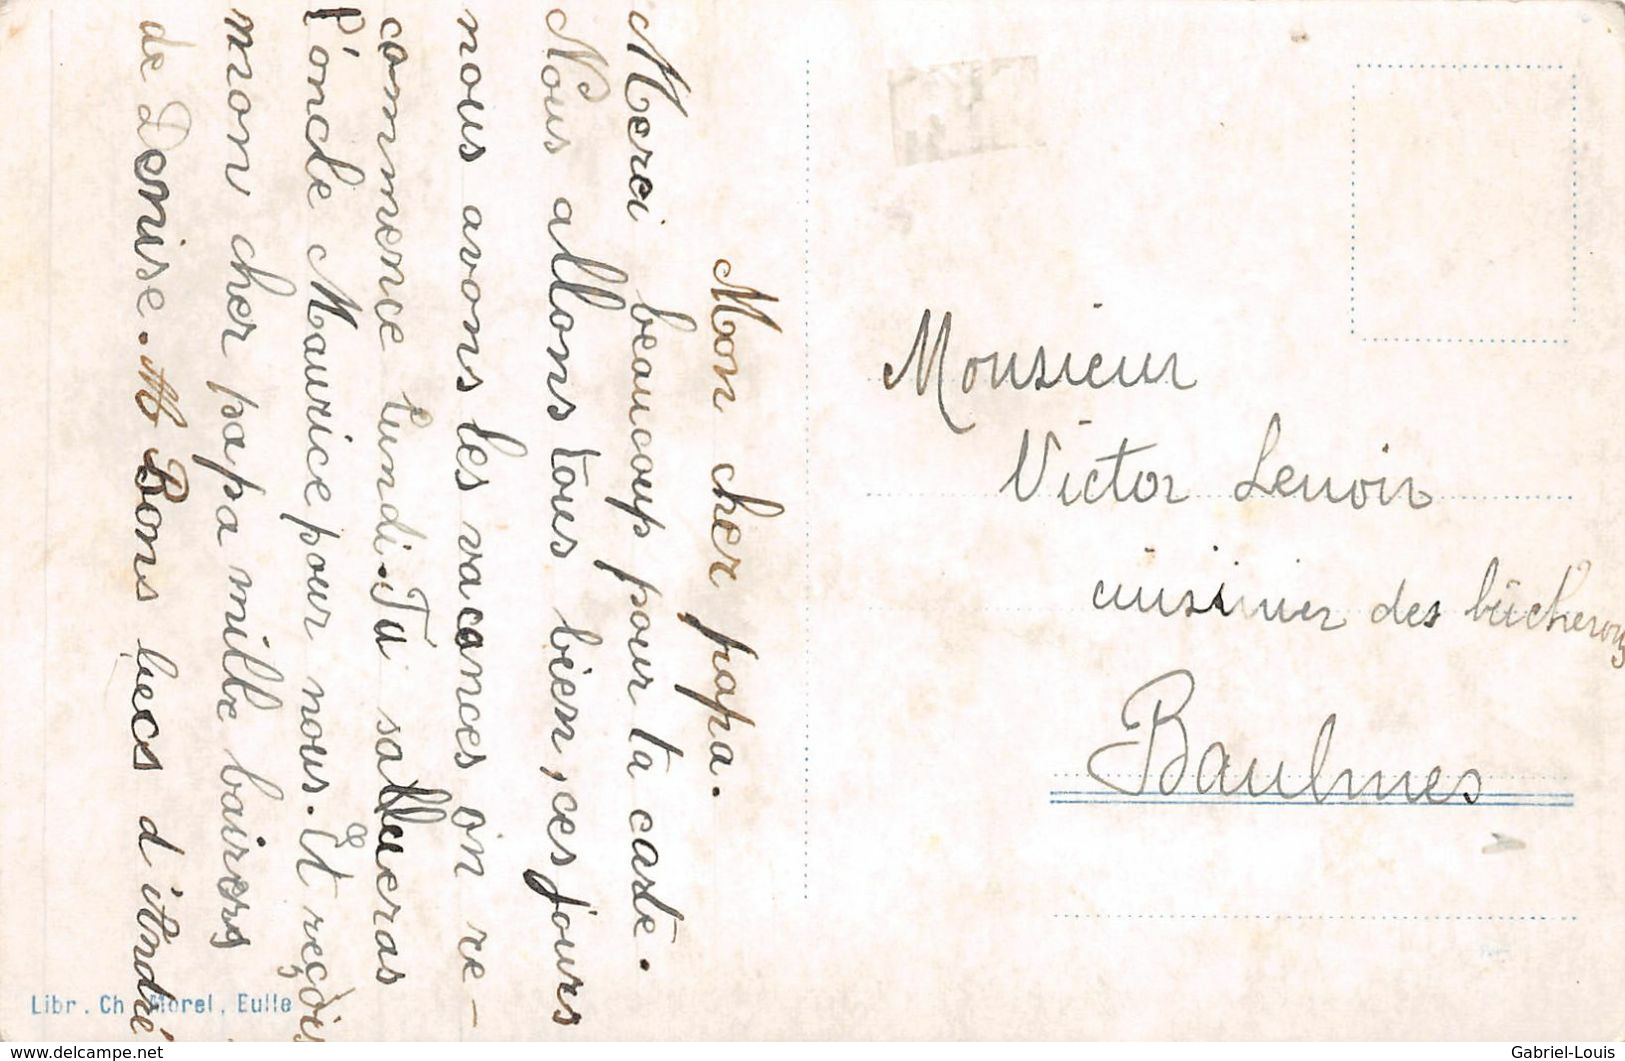 Mon cher papa.
Merci beaucoup pour ta carte.
Nous allons tous bien, ces jours
nous avons les vacances on re-
commence lundi. Tu sallueras
l'oncle Maurice pour nous. Et reçois
mon cher papa mille bairers
de Denise. Bons becs d'André
Monsieur
Victor Lenoir
cuisinier des bûcherons
Baulmes
Libr. Ch. Morel, Eulle
www.delcampe.net
Gabriel-Louis